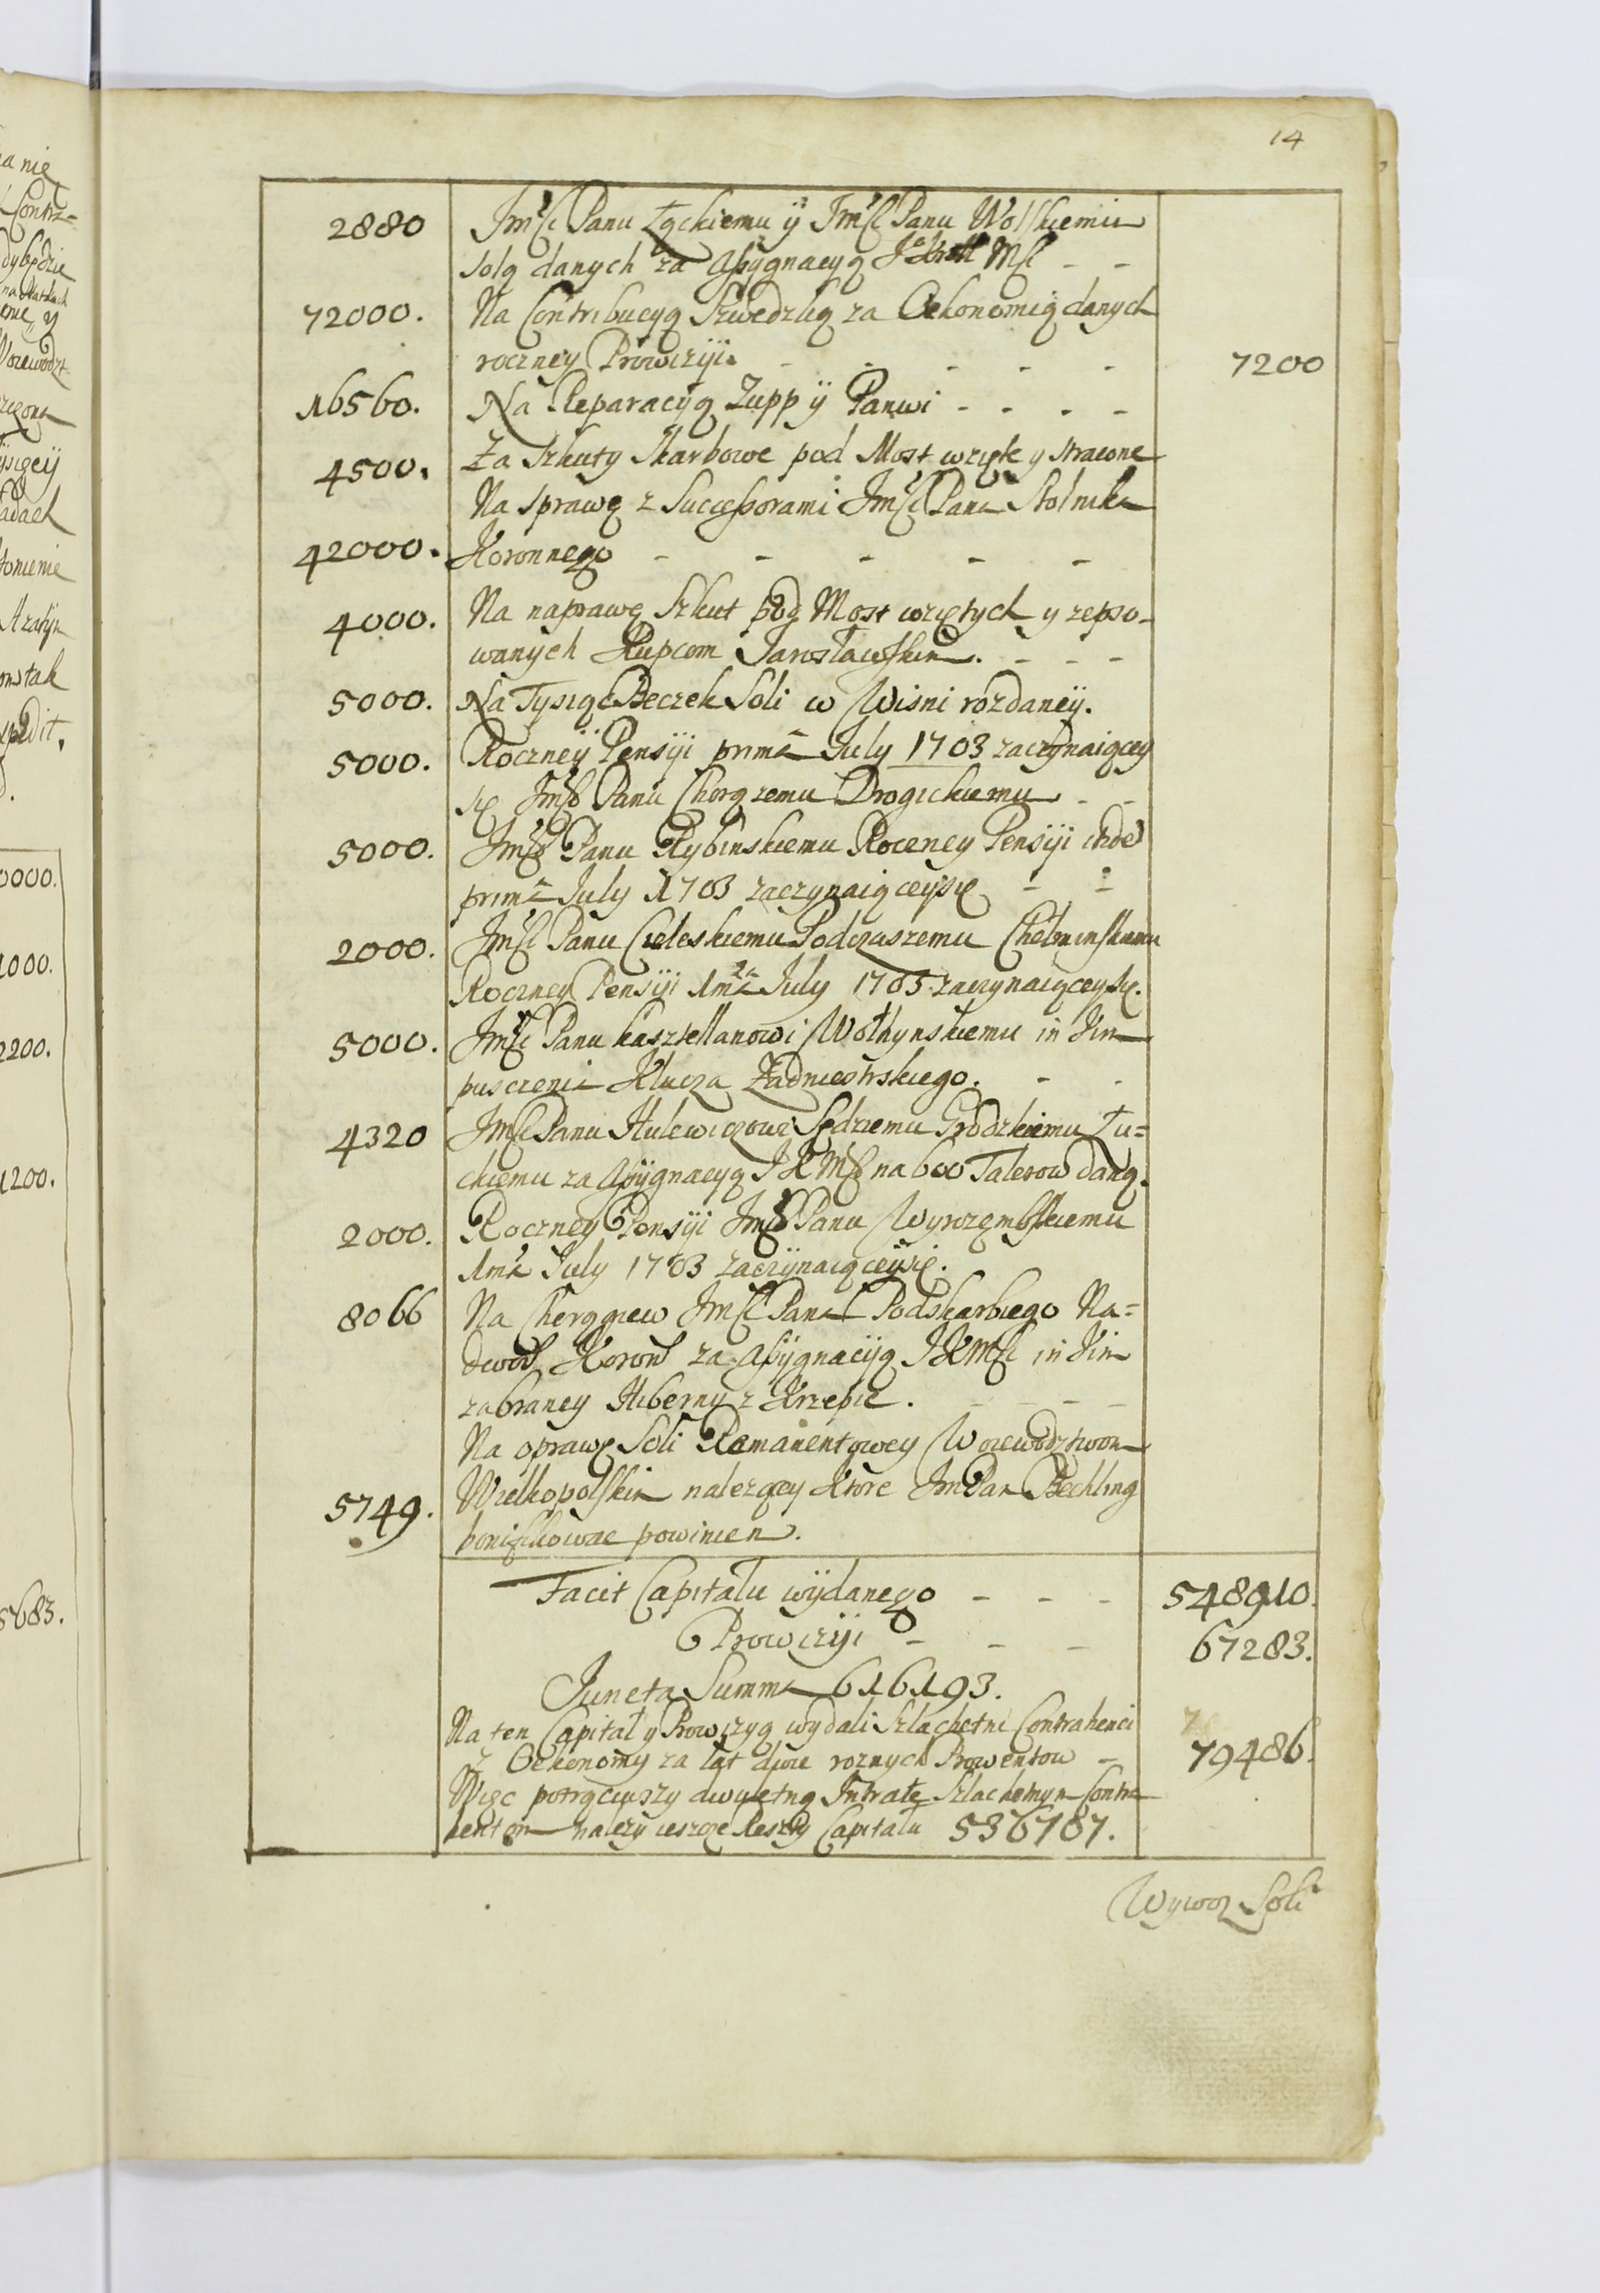 14
2880 Jmśc Panu Łąckiemu ÿ Jmśc Panu Wolskiemu
solą danych za Assÿgnacyą J Kroll Mśc - -
72000. Na Contribucyą Szwedzką za Oekonomią danych
roczney Prowizÿi. - - - - - 7200
16560. Na Reparacÿą Zupp ÿ Panwi - - - -
4500. Za Szkuty Skarbowe pod Most wzięte y stracone
Na sprawę z Successorami Jmśc Pana Stolnika
42000. Koronnego - - - - -
4000. Na naprawę Szkut pod Most wziętych y zepso-
wanych Kupcom Jarosławskim. - - -
5000. Na Tysiąc Beczek Soli w Wisni rozdaneÿ.
5000. Roczneÿ Pensÿi prima July 1703 zaczÿnaiącey
się Jmśc Panu Chorązemu Drogickiemu - -
5000. Jmśc Panu Rybinskiemu Roczney Pensÿi
prima July 1703 zaczynaiąceÿ się - -
2000. Jmśc Panu Cieleskiemu Podczaszemu Chełminskiemu
Roczney Pensÿi 1ma July 1705 zaczynaiącey się.
5000. Jmśc Panu Kasztellanowi Wołhynskiemu in Vim
pusczenia Klucza Zadniestrskiego. - -
4320 Jmśc Panu Hulewiczowi Sędziemu Grodzkiemu Łu=
ckiemu za Assÿgnacyą J K Mśc na 600 Talerow daną.
2000. Roczney Pensÿi Jmśc Panu Wyrozęmbskiemu
1ma July 1703 zaczÿnaiąceÿ się.
8066 Na Chorągiew Jmśc Pana Podskarbiego Na=
dwor Koron za Assÿgnacÿą J K Mśc in Vim
zabraney Hiberny z Krzepic. - - - -
Na oprawę Soli Remanentowey Woiewodztwom
5749. Wielkopolskim nalezącey Ktore Jm Pan Bechling
bonifikowac powinien.
Facit Capitału wÿdanego - - - 548910.
6 Prowizÿi - - - 67283.
Juncta Summa 616193.
Na ten Capitał y Prowizyą wydali Szlachetni Contrahenci
z Oekonomy za lat dwie roznych Prowentow - 79486.
Więc potrąciwszy dwuletną Intratę Szlachetnym Contra
hentom nalezÿ ieszcze Reszty Capitału 536707.
Wywoz Soli